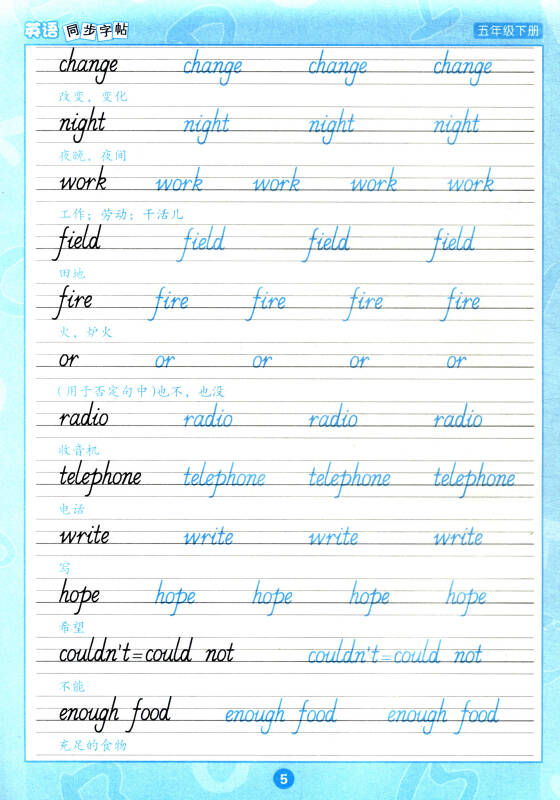 英语 同步字帖 五年级下册
change change change change
改变，变化
night night night night
夜晚，夜间
work work work work work
工作；劳动；干活儿
field field field field
田地
fire fire fire fire fire
火，炉火
or or or or or
(用于否定句中)也不，也没
radio radio radio radio
收音机
telephone telephone telephone telephone
电话
write write write write
写
hope hope hope hope hope
希望
couldn't=could not couldn't=could not
不能
enough food enough food enough food
充足的食物
5